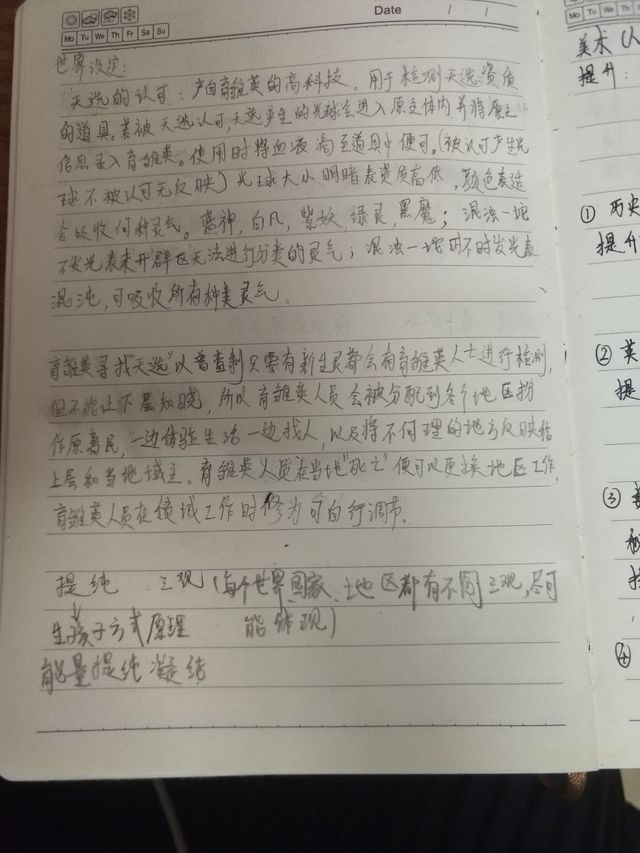 Date / /
Mo Tu We Th Fr Sa Su
世界设定:
天选的认可:产自育雏英的高科技,用于检测天选资质
的道具。若被天选认可,天选产生的光球会进入原主体内并将原主
信息录入育雏英。使用时将血液滴至道具中便可。(被认可产生光
球不被认可无反映)光球大小明暗表资质高低,颜色表适
合吸收何种灵气。蓝神,白凡,紫妖,绿灵,黑魔;混浊一坨
不发光表未开辟区无法进行分类的灵气;混浊一坨时不时发光表
混沌,可吸收所有种类灵气。
育雏英寻找"天选"以普查制只要有新生灵都会有育雏英人士进行检测,
但不能让下层知晓,所以育雏英人员会被分配到各个地区扮
作原离民,一边体验生活一边找人,以及将不何理的地方反映给
上层和当地域主。育雏英人员在当地"死亡"便可以更换地区工作,
育雏英人员在领域工作时修为可自行调节。
提纯 三观(每个世界、国家、地区都有不同三观,尽可
生孩子方式原理 能体现)
能量提纯凝结
美术(人
提升:
① 历史
提升
② 英
提
③
④